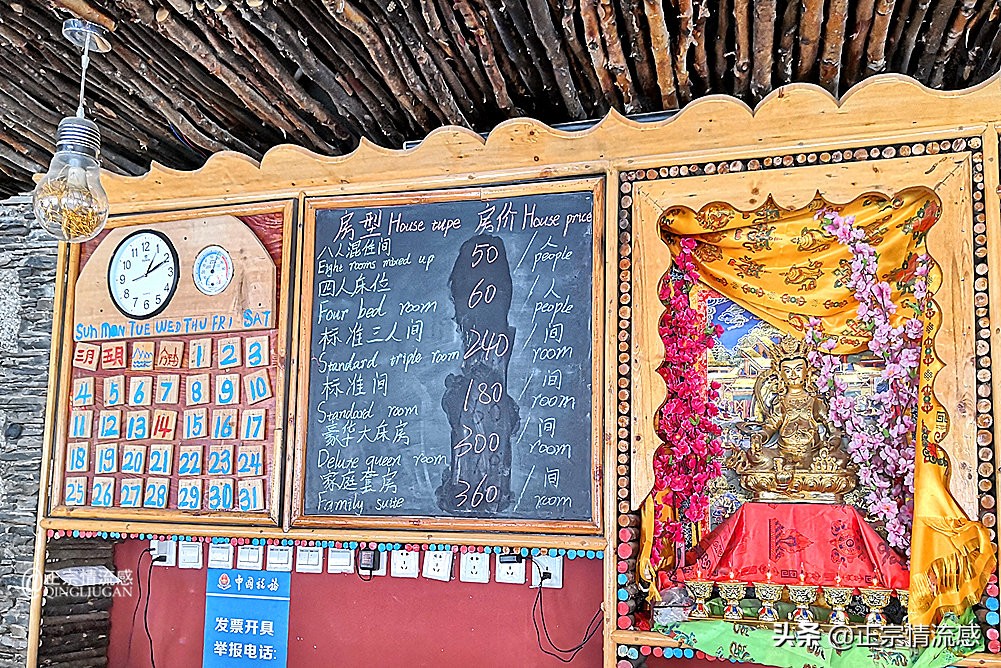 房型 House tupe 房价 House price
八人混住间 50 /人
Eight rooms mixed up people
四人床位 60 /人
Four bed room people
标准三人间 240 /间
Standard triple room room
标准间 180 /间
Standard room room
豪华大床房 300 /间
Deluxe queen room room
家庭套房 360 /间
Family suite room
12 1 2 3 4 5 6 7 8 9 10 11
SUN MON TUE WED THU FRI SAT
1 2 3
4 5 6 7 8 9 10
11 12 13 14 15 16 17
18 19 20 21 22 23 24
25 26 27 28 29 30 31
中国税务
发票开具
举报电话:
@正宗情流感
QINGLIUGAN
头条 @正宗情流感